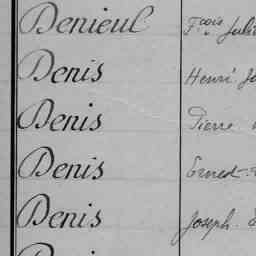 Denieul Fçois Juli
Denis Henri J
Denis Pierre
Denis Ernest
Denis Joseph
Denis